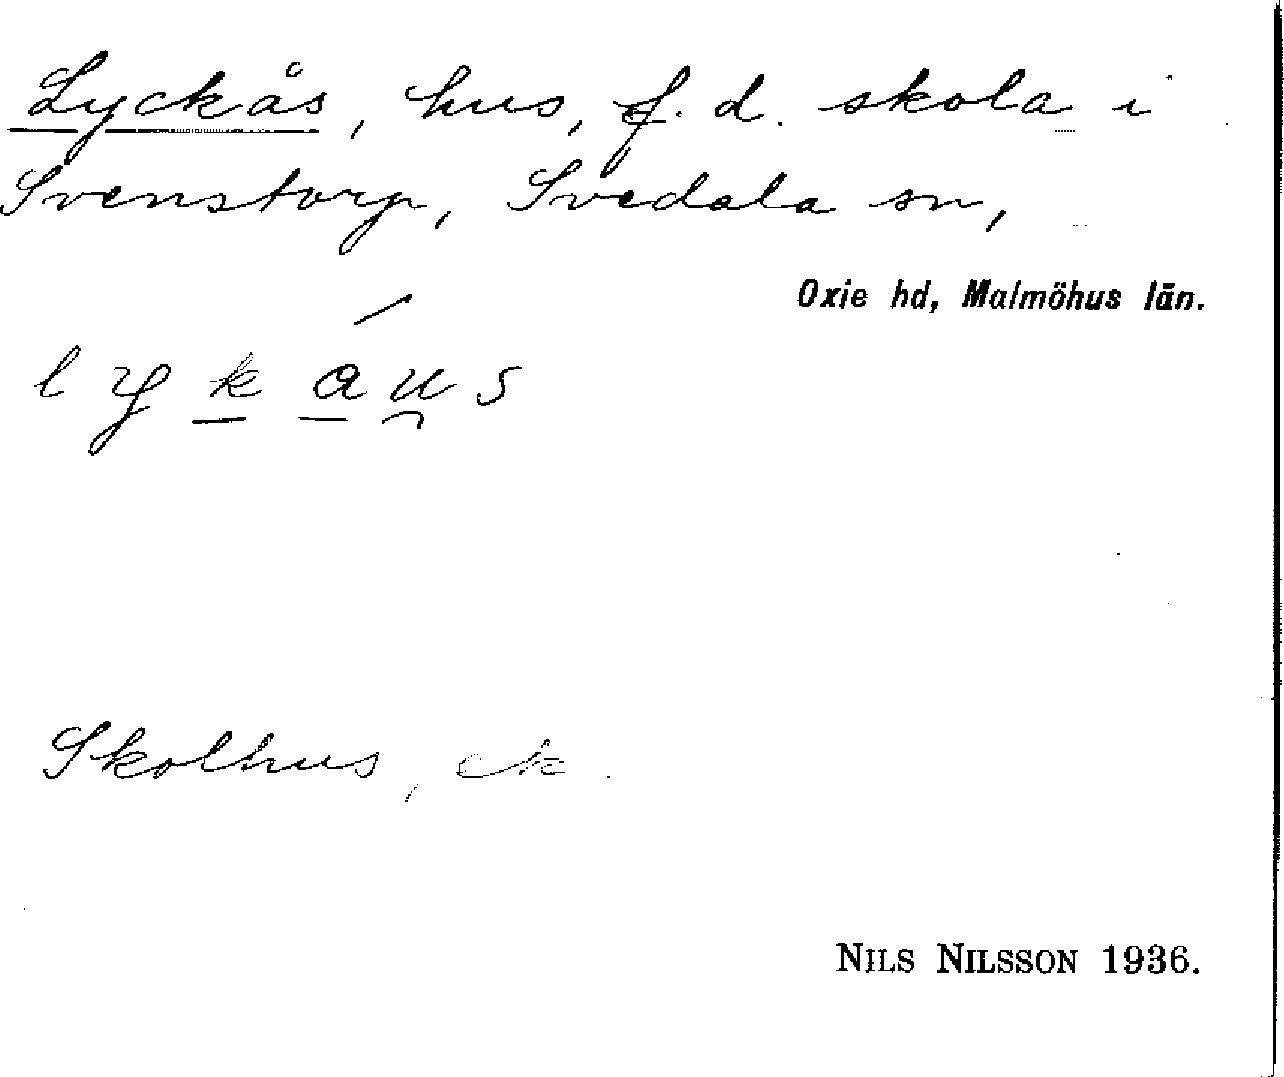 Lyckås, hus, f. d. skola i
Svenstorp, Svedala sn,
Oxie hd, Malmöhus län.
lykáus
Skolhus, ek.
NILS NILSSON 1936.